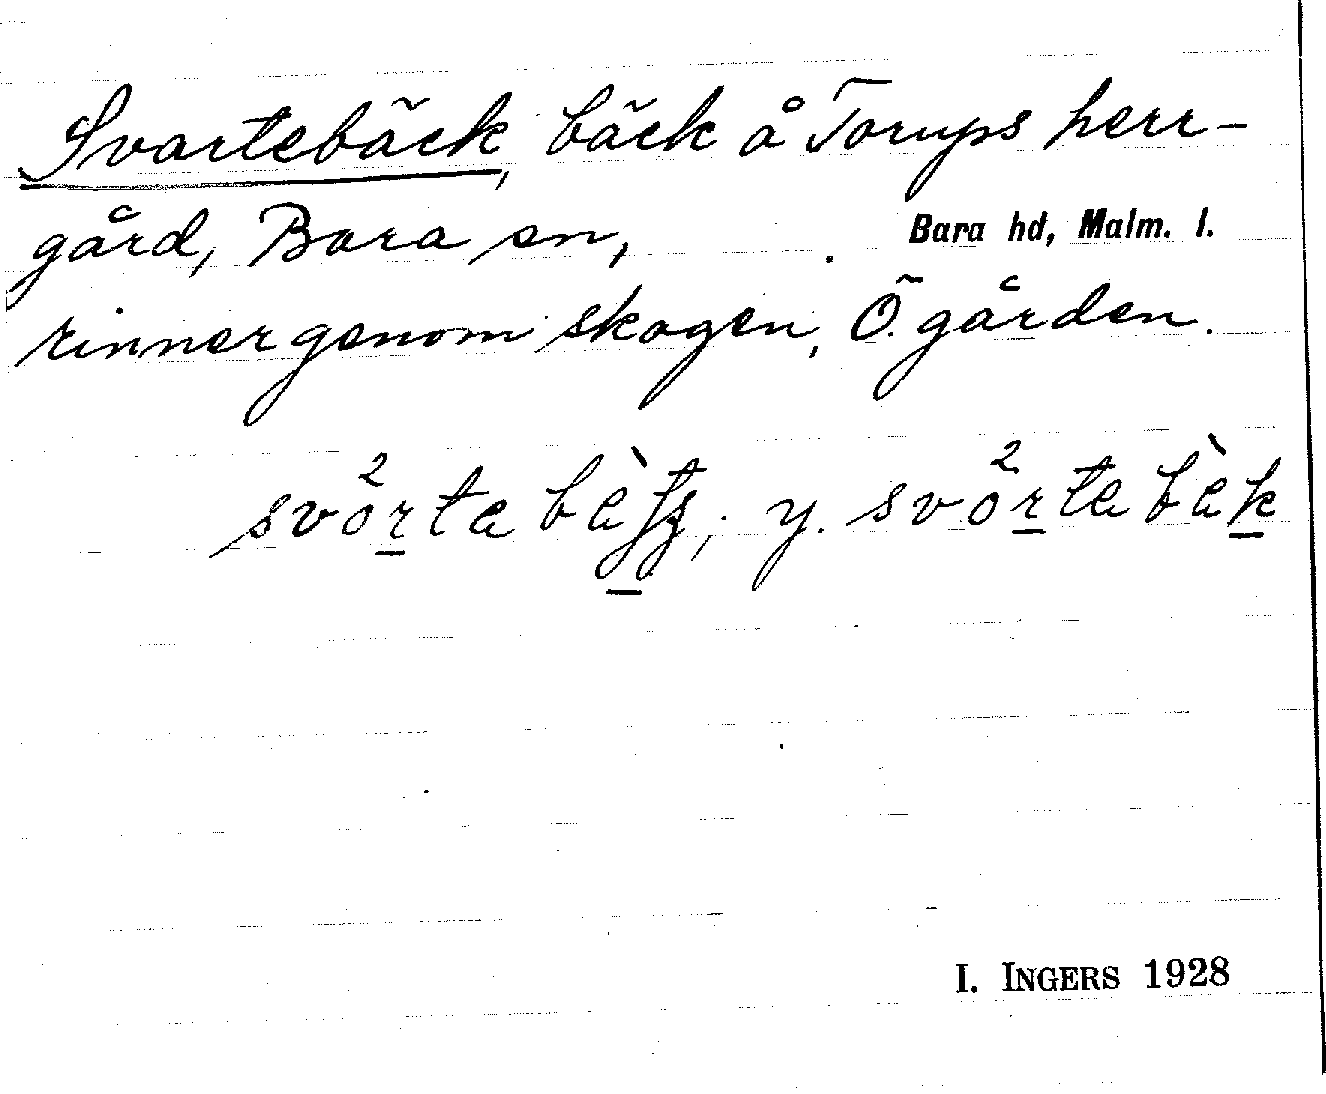 Svartebäck, bäck å Torups herr-
gård, Bara sn, . Bara hd, Malm. l.
rinner genom skogen, Ö. gården.
svö²rtebètʒ; y. svö²rtebèk
I. INGERS 1928